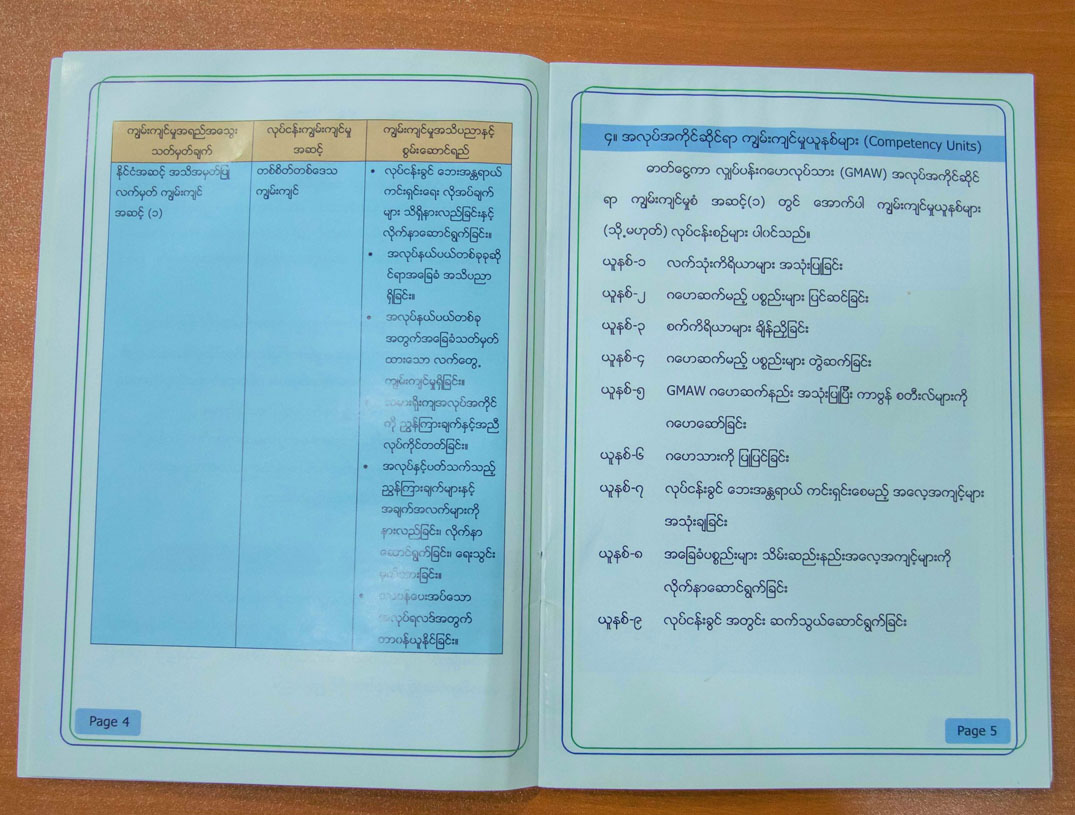 ကျွမ်းကျင်မှုအရည်အသွေး
သတ်မှတ်ချက်
လုပ်ငန်းကျွမ်းကျင်မှု
အဆင့်
ကျွမ်းကျင်မှုအသိပညာနှင့်
စွမ်းဆောင်ရည်
နိုင်ငံအဆင့် အသိအမှတ်ပြု
လက်မှတ် ကျွမ်းကျင်
အဆင့် (၁)
တစ်စိတ်တစ်ဒေသ
ကျွမ်းကျင်
• လုပ်ငန်းခွင် ဘေးအန္တရာယ်
ကင်းရှင်းရေး လိုအပ်ချက်
များ သိရှိနားလည်ခြင်းနှင့်
လိုက်နာဆောင်ရွက်ခြင်း။
• အလုပ်နယ်ပယ်တစ်ခုခုဆို
င်ရာအခြေခံ အသိပညာ
ရှိခြင်း။
• အလုပ်နယ်ပယ်တစ်ခု
အတွက်အခြေခံသတ်မှတ်
ထားသော လက်တွေ့
ကျွမ်းကျင်မှုရှိခြင်း။
• သမားရိုးကျအလုပ်အကိုင်
ကို ညွှန်ကြားချက်နှင့်အညီ
လုပ်ကိုင်တတ်ခြင်း။
• အလုပ်နှင့်ပတ်သက်သည့်
ညွှန်ကြားချက်များနှင့်
အချက်အလက်များကို
နားလည်ခြင်း၊ လိုက်နာ
ဆောင်ရွက်ခြင်း၊ ရေးသွင်း
မှတ်သားခြင်း။
• တာဝန်ပေးအပ်သော
အလုပ်ရလဒ်အတွက်
တာဝန်ယူနိုင်ခြင်း။
Page 4
၄။ အလုပ်အကိုင်ဆိုင်ရာ ကျွမ်းကျင်မှုယူနစ်များ (Competency Units)
ဓာတ်ငွေ့ကာ လျှပ်ပန်းဂဟေလုပ်သား (GMAW) အလုပ်အကိုင်ဆိုင်
ရာ ကျွမ်းကျင်မှုစံ အဆင့်(၁) တွင် အောက်ပါ ကျွမ်းကျင်မှုယူနစ်များ
(သို့မဟုတ်) လုပ်ငန်းစဉ်များ ပါဝင်သည်။
ယူနစ်-၁ လက်သုံးကိရိယာများ အသုံးပြုခြင်း
ယူနစ်-၂ ဂဟေဆက်မည့် ပစ္စည်းများ ပြင်ဆင်ခြင်း
ယူနစ်-၃ စက်ကိရိယာများ ချိန်ညှိခြင်း
ယူနစ်-၄ ဂဟေဆက်မည့် ပစ္စည်းများ တွဲဆက်ခြင်း
ယူနစ်-၅ GMAW ဂဟေဆက်နည်း အသုံးပြုပြီး ကာဗွန် စတီးလ်များကို
ဂဟေဆော်ခြင်း
ယူနစ်-၆ ဂဟေသားကို ပြုပြင်ခြင်း
ယူနစ်-၇ လုပ်ငန်းခွင် ဘေးအန္တရာယ် ကင်းရှင်းစေမည့် အလေ့အကျင့်များ
အသုံးချခြင်း
ယူနစ်-၈ အခြေခံပစ္စည်းများ သိမ်းဆည်းနည်းအလေ့အကျင့်များကို
လိုက်နာဆောင်ရွက်ခြင်း
ယူနစ်-၉ လုပ်ငန်းခွင် အတွင်း ဆက်သွယ်ဆောင်ရွက်ခြင်း
Page 5